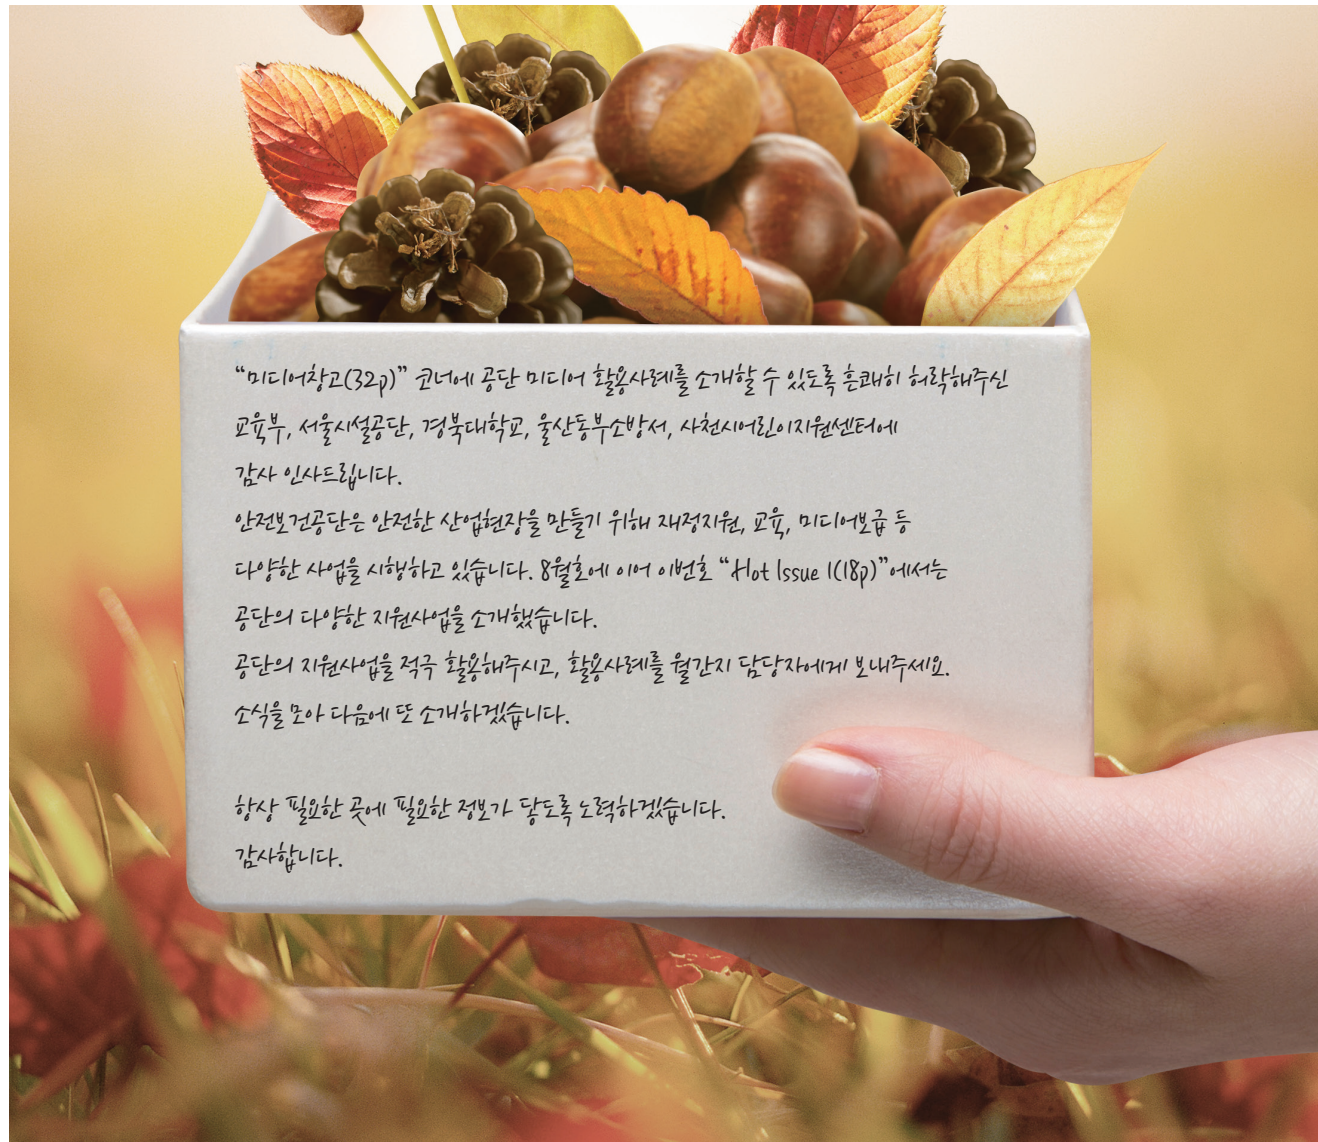 “미디어창고(32p)” 코너에 공단 미디어 활용사례를 소개할 수 있도록 흔쾌히 허락해주신
교육부, 서울시설공단, 경북대학교, 울산동부소방서, 사천시어린이지원센터에
감사 인사드립니다.
안전보건공단은 안전한 산업현장을 만들기 위해 재정지원, 교육, 미디어보급 등
다양한 사업을 시행하고 있습니다. 8월호에 이어 이번호 “Hot Issue 1(18p)”에서는
공단의 다양한 지원사업을 소개했습니다.
공단의 지원사업을 적극 활용해주시고, 활용사례를 월간지 담당자에게 보내주세요.
소식을 모아 다음에 또 소개하겠습니다.
항상 필요한 곳에 필요한 정보가 닿도록 노력하겠습니다.
감사합니다.